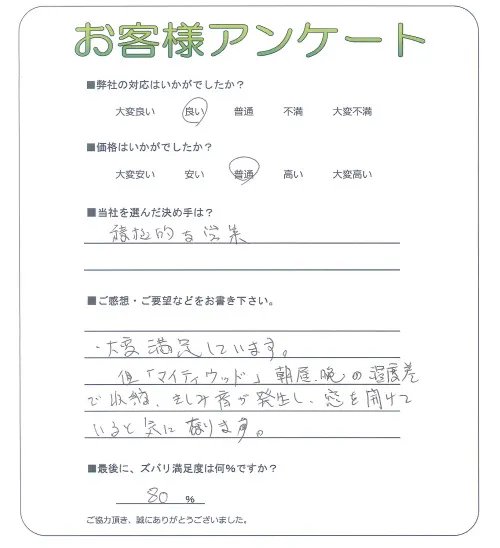 お客様アンケート
■弊社の対応はいかがでしたか？
大変良い 良い 普通 不満 大変不満
■価格はいかがでしたか？
大変安い 安い 普通 高い 大変高い
■当社を選んだ決め手は？
積極的な営業
■ご感想・ご要望などをお書き下さい。
・大変満足しています。
但「マイティウッド」朝昼.晩の温度差
で収縮、きしみ音が発生し、窓を開けて
いると気に なります。
■最後に、ズバリ満足度は何%ですか？
80 %
ご協力頂き、誠にありがとうございました。